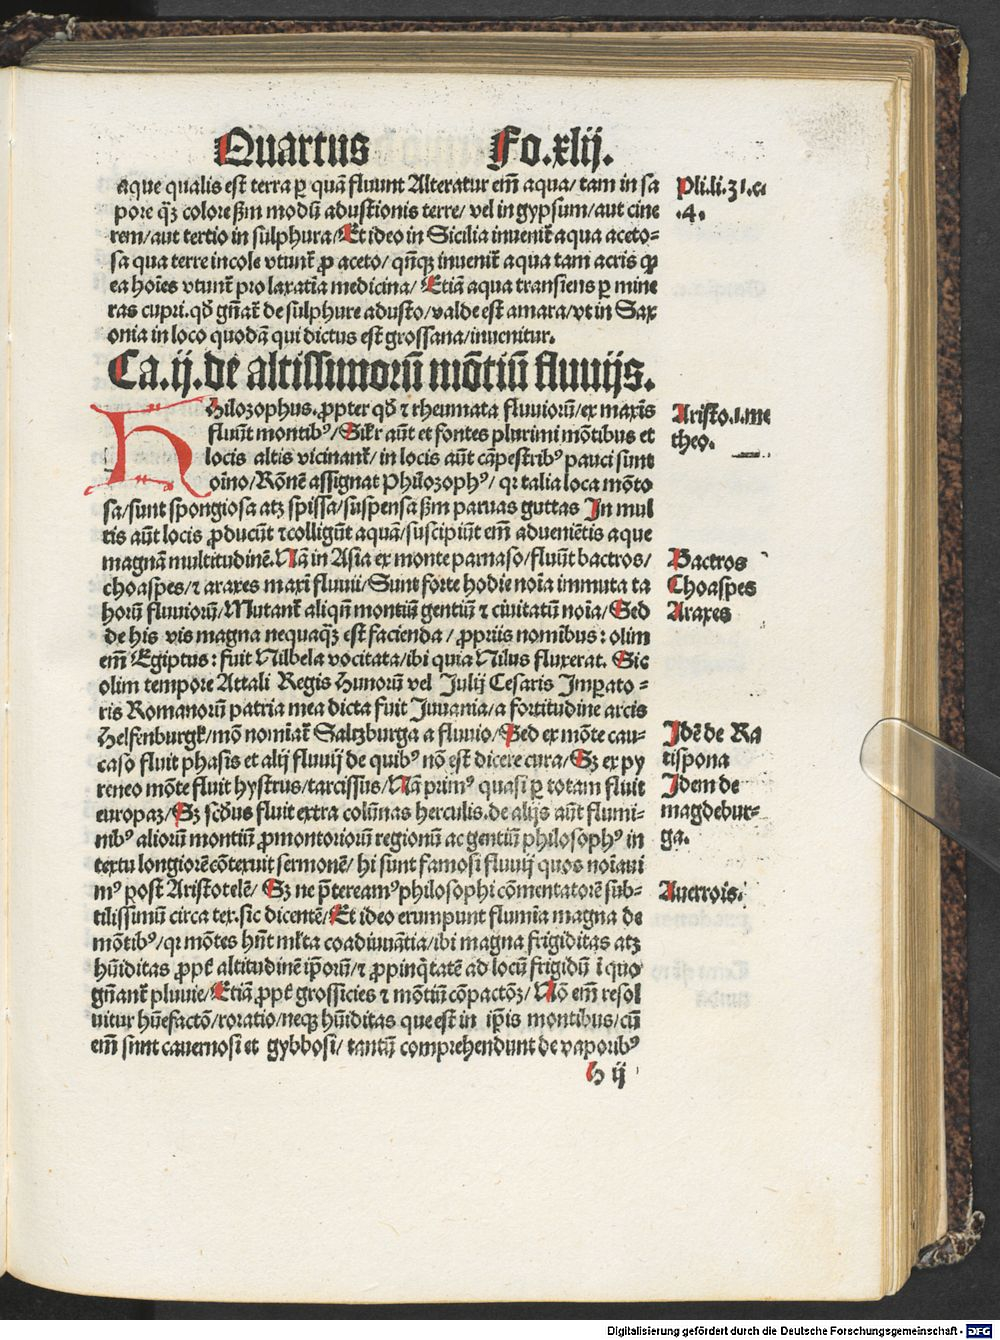 Quartus Fo.xlij.
aque qualis est terra ꝑ quā fluunt Alteratur em̄ aqua/ tam in sa
pore qꝫ colore ẜm modū adustionis terre/ vel in gypsum/aut cine
rem/aut tertio in sulphura/Et ideo in Sicilia inuenit᷑ aqua aceto⸗
sa qua terre incole vtunt᷑ ꝓ aceto/ qn̄qꝫ inuenit᷑ aqua tam acris ꝙ
ea hoīes vtunt᷑ pro laxatīa medicina/ Etiā aqua transiens ꝑ mine
ras cupri. qd̄ gn̄at᷑ de sulphure adusto/valde est amara/vt in Sax
onia in loco quodā qui dictus est grossana/inuenitur.
Pli.li.31.c.
.4.
Ca.ij.de altissimorū mōtiū fluuijs.
Hilozophus.ꝓpter qd̄ ⁊ rheumata fluuiorū/ex maxīs
fluūt montibꝰ/Sil̄r aūt et fontes plurimi mōtibus et
locis altis vicinant᷑/in locis aūt cāpestribꝰ pauci sunt
oīno/Rōnē assignat Philozophꝰ/ qꝛ talia loca mōto
sa/sunt spongiosa atꝫ spissa/suspensa ẜm paruas guttas In mul
tis aūt locis ꝓducūt ⁊colligūt aquā/suscipiūt em̄ adueniētis aque
magnā multitudinē.Nā in Asia ex monte parnaso/fluūt bactros/
choaspes/⁊ araxes maxī fluuii/Sunt forte hodie noīa immuta ta
horū fluuiorū/Mutant᷑ aliqn̄ montiū gentiū ⁊ ciuitatū noīa/Sed
de his vis magna nequaqꝫ est facienda/ ꝓpriis nomibus: olim
em̄ Egiptus: fuit Nilbela vocitata/ibi quia Nilus fluxerat. Sic
olim tempore Attali Regis Hunorū vel Julij Cesaris Imꝑato⸗
ris Romanorū patria mea dicta fuit Juuania/a fortitudine arcis
Helfenburgk/mō nomīat᷑ Saltzburga a fluuio/Sed ex mōte cau⸗
caso fluit phasis et alij fluuij de quibꝰ nō est dicere cura/Sꝫ ex py
reneo mōte fluit hystrus/tarcissus/Nā primꝰ quasi ꝑ totam fluit
europaꝫ/Sꝫ scd̄us fluit extra colūnas herculis.de alijs aūt flumi⸗
nibꝰ aliorū montiū ꝓmontoriorū regionū ac gentiū philosophꝰ in
textu longiorē cōtexuit sermonē/ hi sunt famosi fluuij quos noīaui
mꝰ post Aristotelē/ Sꝫ ne p̄tereamꝰ philosophi cōmentatorē sub⸗
tilissimū circa tex.sic dicentē/Et ideo erumpunt flumīa magna de
mōtibꝰ/qꝛ mōtes hn̄t ml̄ta coadiuuātia/ibi magna frigiditas atꝫ
hūiditas ꝓpt᷑ altitudinē ip̄orū/⁊ ꝓpinq̄tatē ad locū frigidū ī quo
gn̄ant᷑ pluuie/Etiā ꝓpt᷑ grossicies ⁊ mōtiū cōpactōꝫ/ Nō em̄ resol
uitur hūefactō/roratio/neqꝫ hūiditas que est in ip̄is montibus/cū
em̄ sunt cauernosi et gybbosi/ tantū comprehendunt de vaporibꝰ
h ij
Aristo.1.me
theo.
Bactros
Choaspes
Araxes
Idē de Ra
tispona
Idem de
magdebur⸗
ga.
Auerrois.
Digitalisierung gefördert durch die Deutsche Forschungsgemeinschaft - DFG